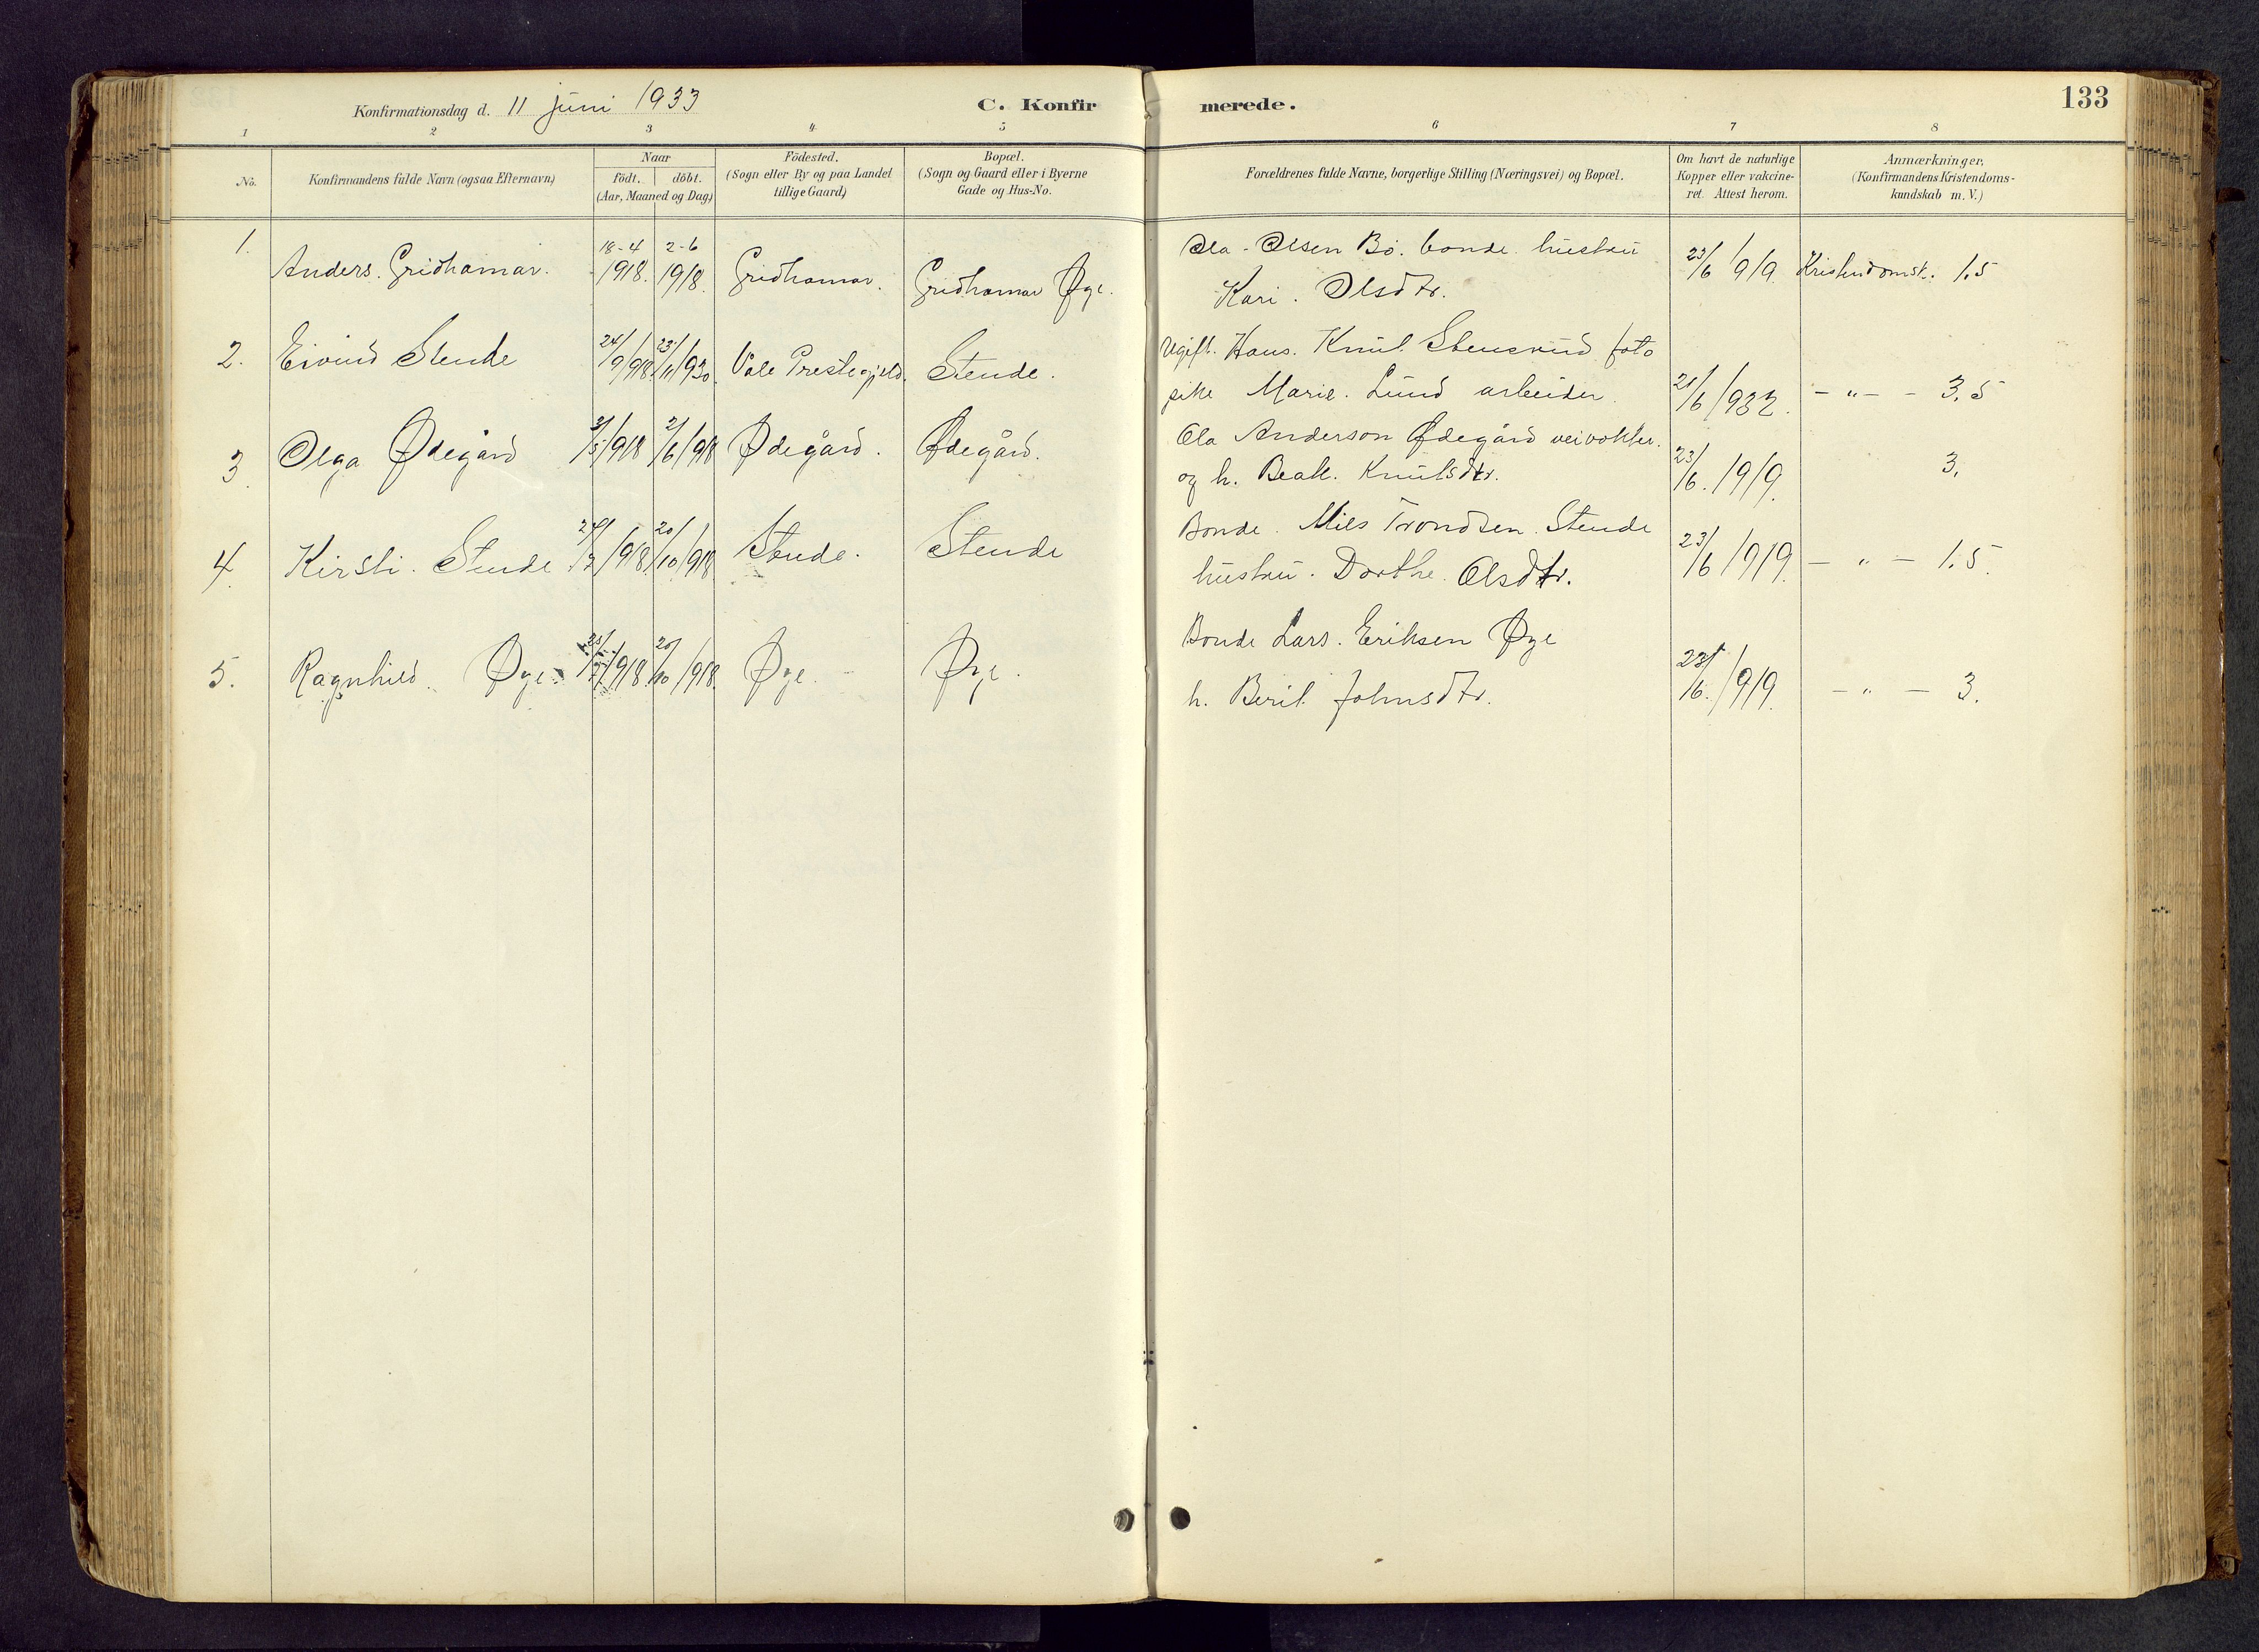 Konfirmationsdag d. 11 juni 1933
C. Konfirmerede.
133
1 2 3 4 5 6 7 8
No.
Konfirmandens fulde Navn (ogsaa Efternavn)
Naar
födt. döbt.
(Aar, Maaned og Dag)
Födested.
(Sogn eller By og paa Landet
tillige Gaard)
Bopæl.
(Sogn og Gaard eller i Byerne
Gade og Hus-No.
Forældrenes fulde Navne, borgerlige Stilling (Næringsvei) og Bopæl.
Om havt de naturlige
Kopper eller vakcine-
ret. Attest herom.
Anmærkninger.
(Konfirmandens Kristendoms-
kundskab m. V.)
1. 18-4 2-6 Ola Olsen Bö. bonde hustru
Anders. Gridhamar. 1918. 1918. Gridhamar. Gridhamar Øye. 23/6 1919. Kristendomsk. 1.5
Kari. Olsdtr.
Ugift. Hans. Knut. Stensrud foto
2. Eivind Stende 24/9/918. 23/11/930. Våle Prestegjeld. Stende.
pike Marie. Lund arbeider. 21/6/932. - " - - 3.5
Ola Anderson Ødegård veivokter.
3. Olga Ødegård /5/918 2/6/918 Ødegård. Ødegård.
og h. Beate. Knutsdtr. 23/6. 1919. 3.
Bonde. Nils Trondsen. Stende
4. Kirsti. Stende /918. 20/10/918 Stende. Stende
hustru. Dorthe. Olsdtr. 23/6 1919. - " - 1.5.
Bonde Lars. Eriksen Øye
5. Ragnhild Øye. /918. 20/10/918. Øye. Øye.
h. Berit. Johnsdtr. 23/6. 1919. - " - 3.